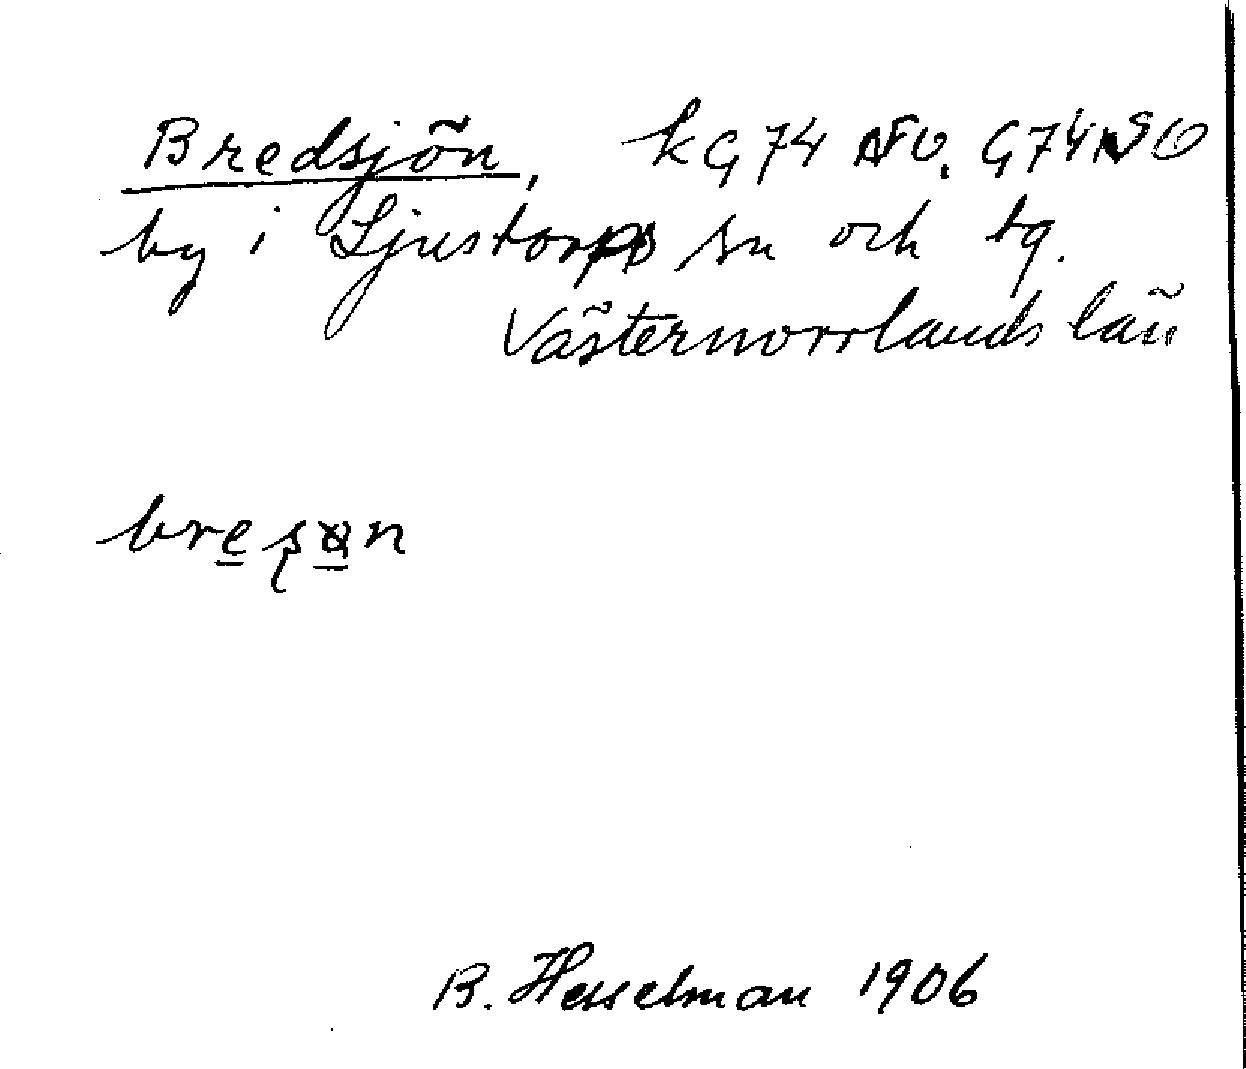 Bredsjön, k G 74 NV. G 74 NSO
by i Ljustorps sn och tg.
Västernorrlands län
bre
B. Hesselman 1906